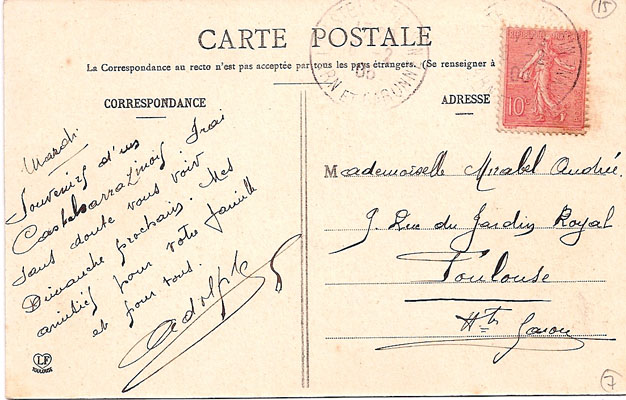 15
CARTE POSTALE
La Correspondance au recto n'est pas acceptée par tous les pays étrangers. (Se renseigner à
CORRESPONDANCE
ADRESSE
10c
RN ET GARONNE
06
Mardi
Souvenirs d'un
Castelsarrazinois Irai
sans doute vous voir
Dimanche prochain. Mes
amitiés pour votre famille
et pour vous.
Adolphe
Mademoiselle Mirabel Andrée.
9. Rue du Jardin Royal
Toulouse
Hte Garonne
LF
TOULOUSE
7